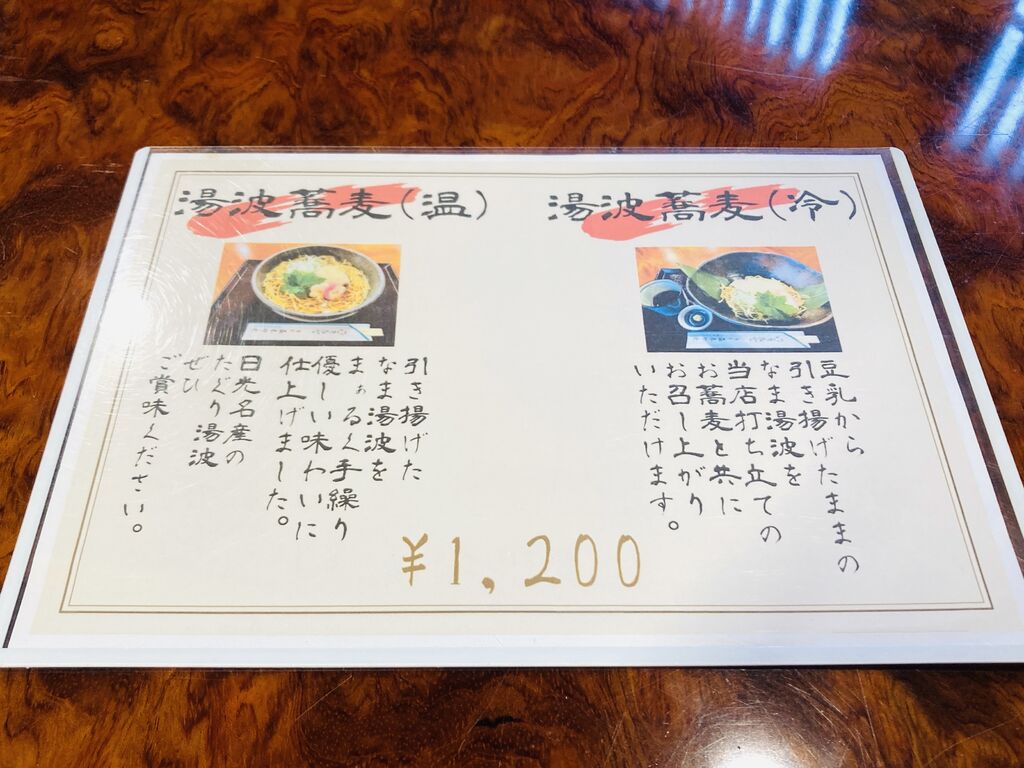 湯波蕎麦(温)
湯波蕎麦(冷)
豆乳から
引き揚げたままの
なま湯波を
当店打ち立ての
お蕎麦と共に
お召し上がり
いただけます。
引き揚げた
なま湯波を
まぁるく手繰り
優しい味わいに
仕上げました。
日光名産の
たぐり湯波
ぜひ
ご賞味ください。
¥1,200